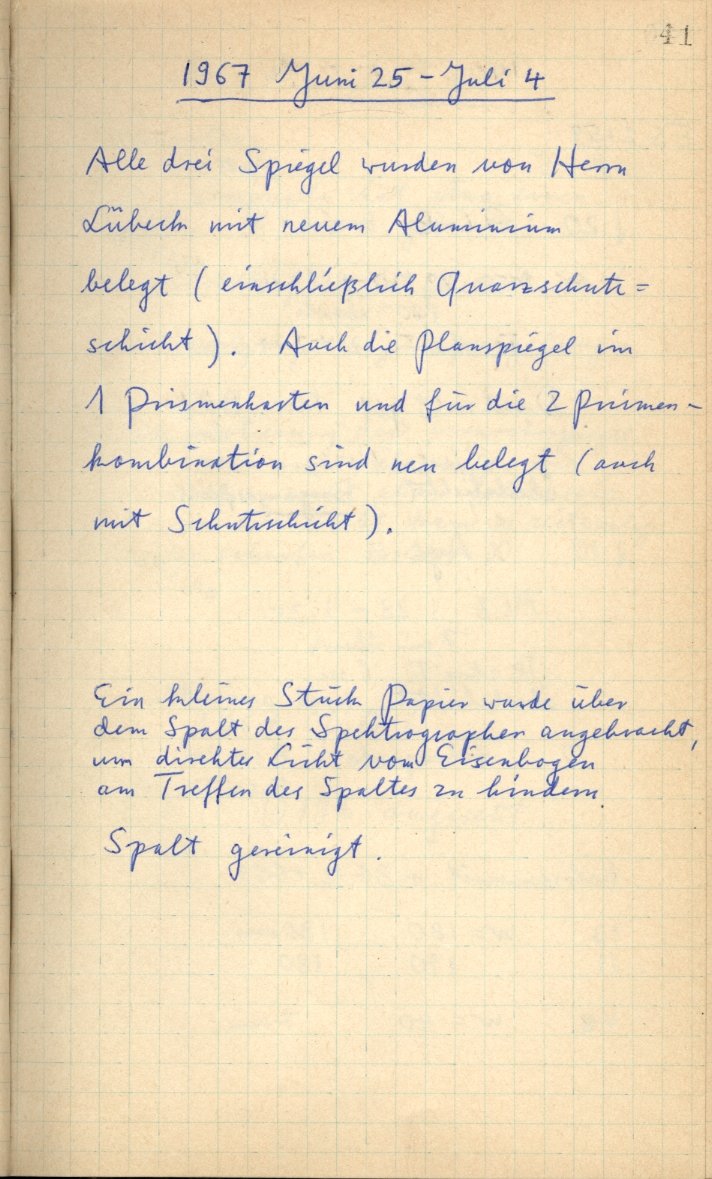 41
1967 Juni 25 - Juli 4
Alle drei Spiegel wurden von Herrn
Lübeck mit neuem Aluminium
belegt (einschließlich Quarzschutz=
schicht). Auch die Planspiegel im
1 Prismenkasten und für die 2 Prismen-
kombination sind neu belegt (auch
mit Schutzschicht).
Ein kleines Stück Papier wurde über
dem Spalt des Spektrographen angebracht,
um direktes Licht vom Eisenbogen
am Treffen des Spaltes zu hindern.
Spalt gereinigt.